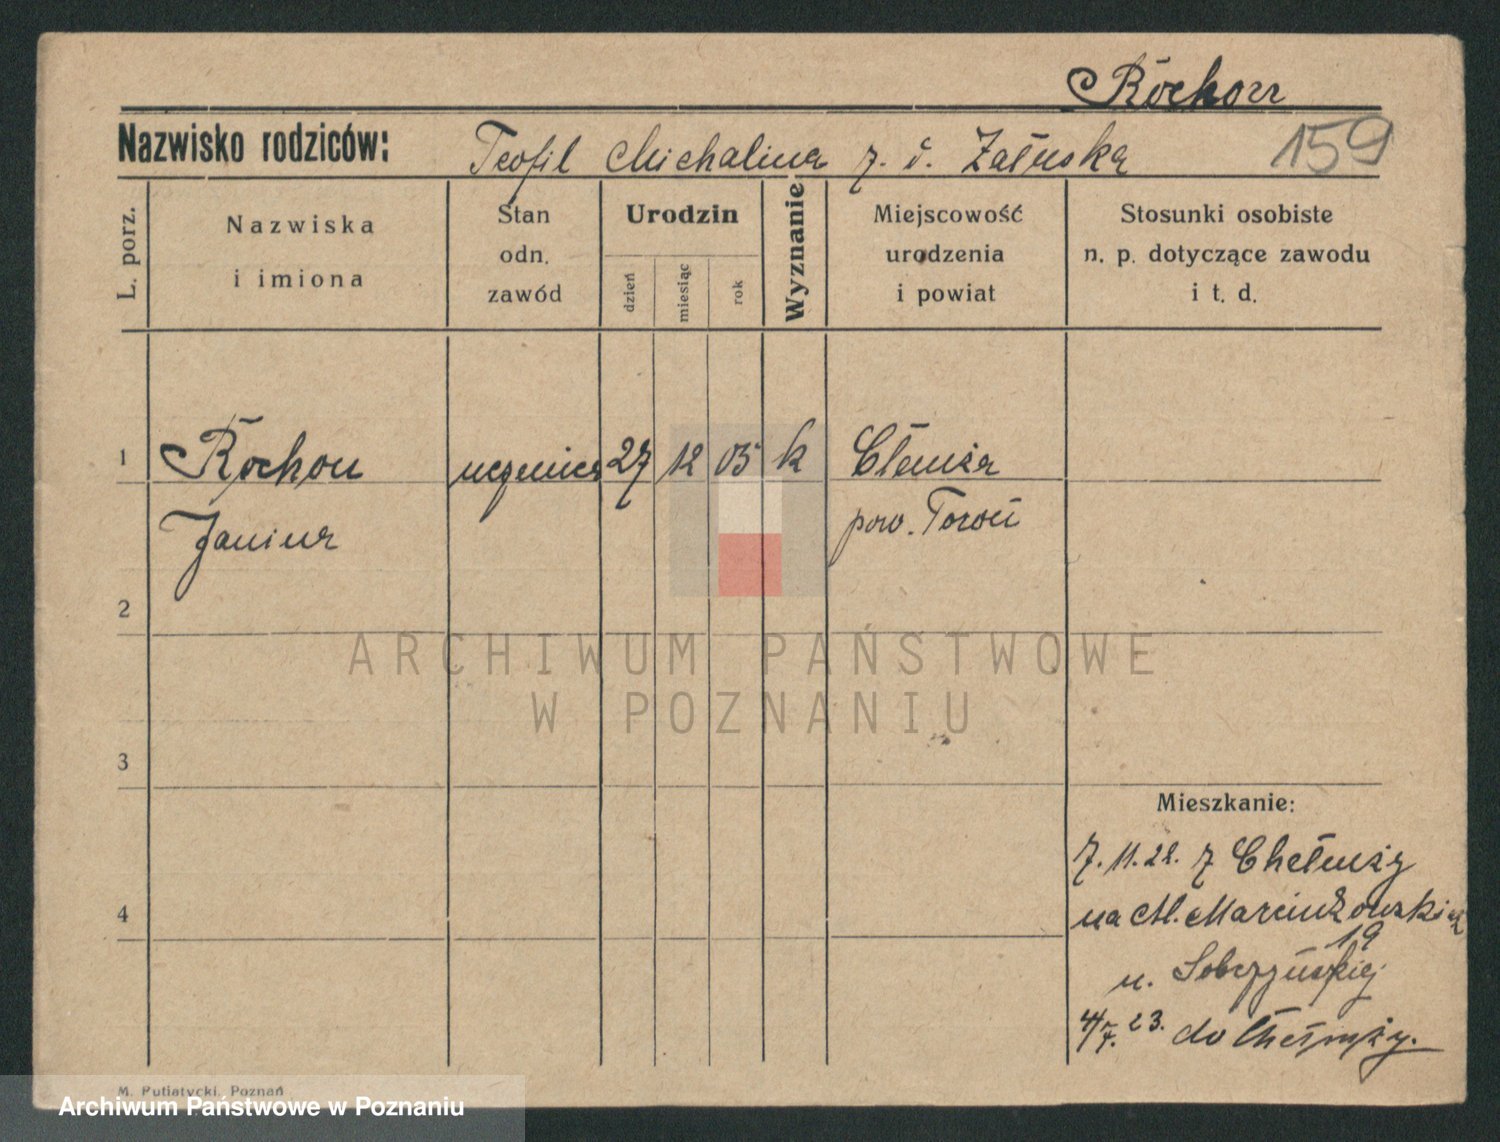 Rochon
Nazwisko rodziców: Teofil Michalina z. d. Załuska 159
L. porz.
Nazwiska
i imiona
Stan
odn.
zawód
Urodzin
dzień
miesiąc
rok
Wyznanie
Miejscowość
urodzenia
i powiat
Stosunki osobiste
n. p. dotyczące zawodu
i t. d.
1 Rochon uczenica 27 12 05 k Chełmża
Janina pow. Toruń
2
ARCHIWUM PAŃSTWOWE
W POZNANIU
3
Mieszkanie:
7.11.22. z Chełmży
4
na Marcinkowskiego
19
u.
23. do Chełmży.
M. Putiatycki, Poznań
Archiwum Państwowe w Poznaniu